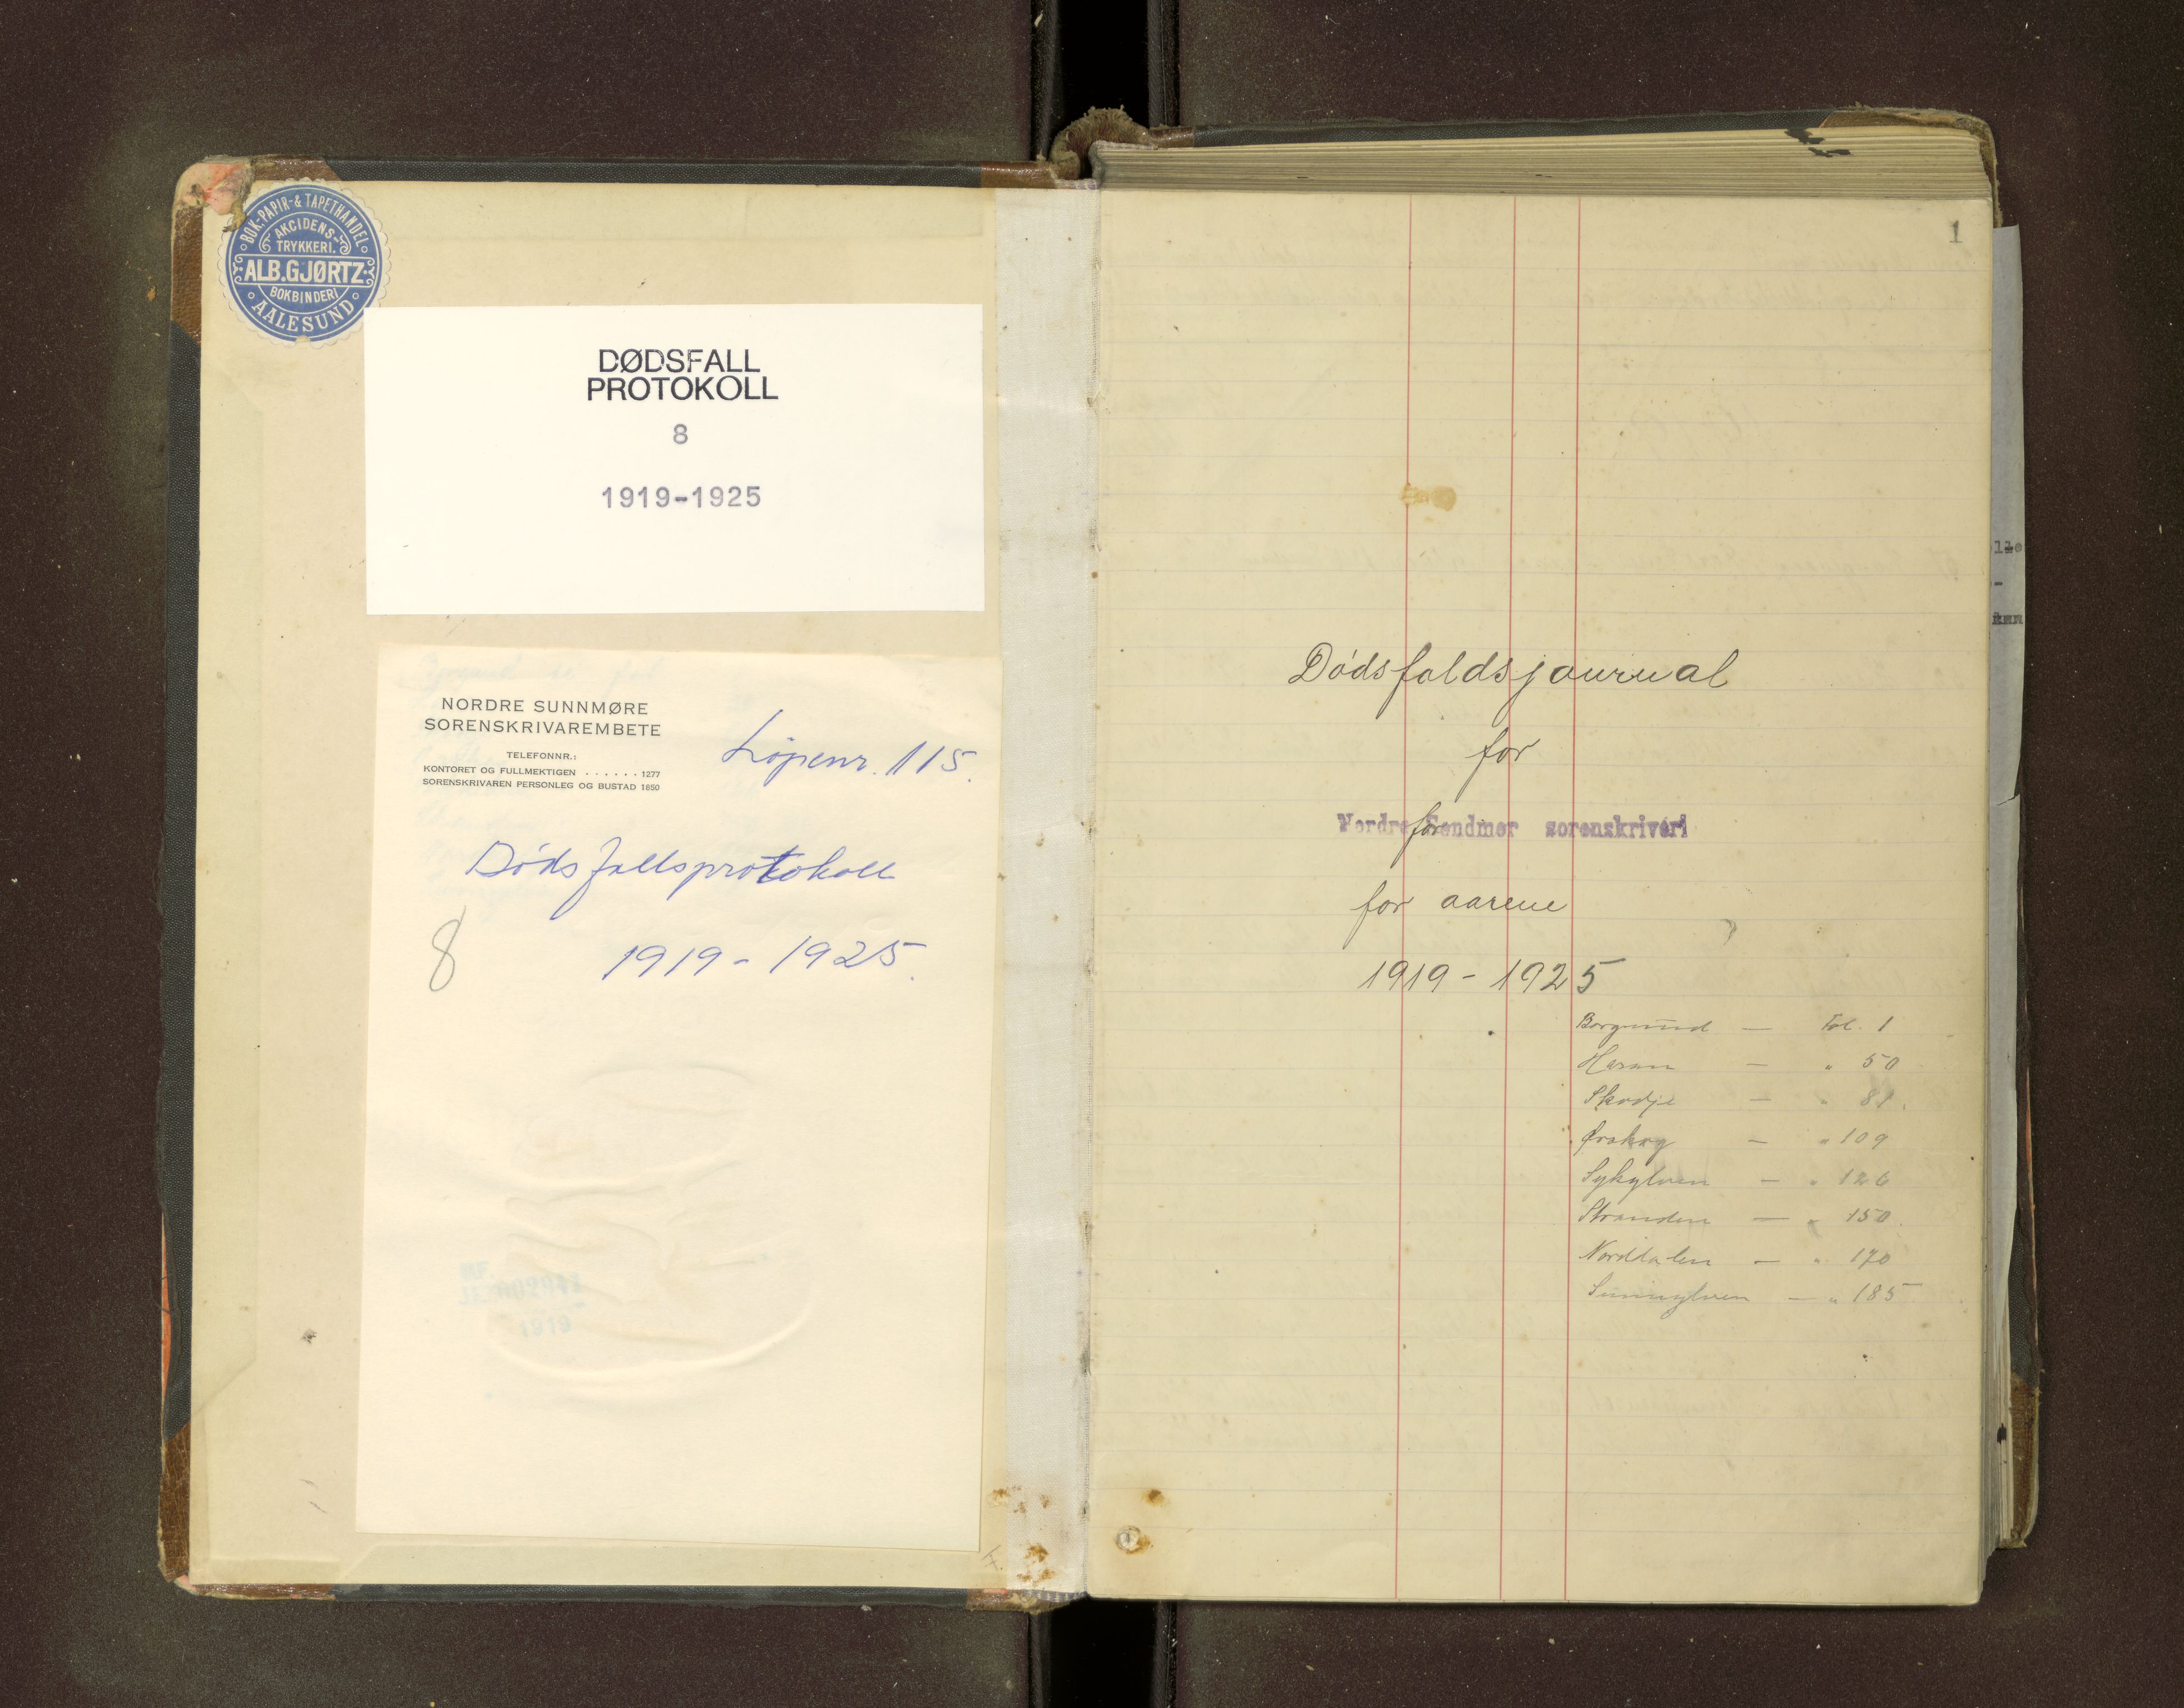 BOK-PAPIR-& TAPETHANDEL
AKCIDENS-
TRYKKERI.
ALB.GJØRTZ
BOKBINDERI
AALESUND
DØDSFALL
PROTOKOLL
8
1919-1925
NORDRE SUNNMØRE
SORENSKRIVAREMBETE
TELEFONNR.:
KONTORET OG FULLMEKTIGEN . . . . . . 1277
SORENSKRIVAREN PERSONLEG OG BUSTAD 1850
Löpenr. 115.
Dödsfallsprotokoll
8
1919 - 1925.
1
Dødsfaldsjournal
for
for
Nordre Søndmør sorenskriveri
for aarene
1919 - 1925
Borgund — Fol. 1
Haram — " 50
Skodje — " 81.
Ørskog — " 109
Sykylven — " 126
Stranden — " 150.
Norddalen — " 170
Sunnylven — " 185